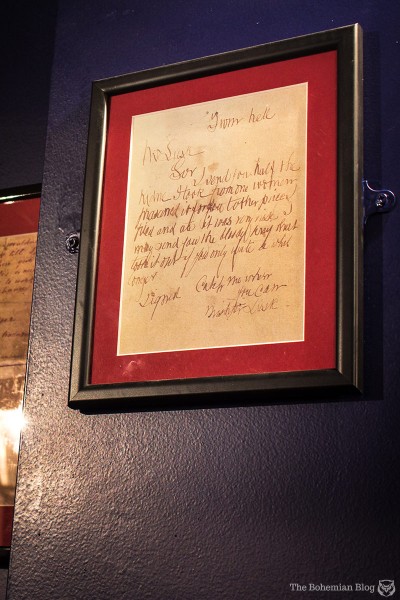 From hell
Mr Lusk
Sor
I send you half the
Kidne I took from one women
prasarved it for you tother piece I
fried and ate it was very nise I
may send you the bloody knif that
took it out if you only wate a whil
longer
signed Catch me when
you Can
Mishter Lusk
The Bohemian Blog